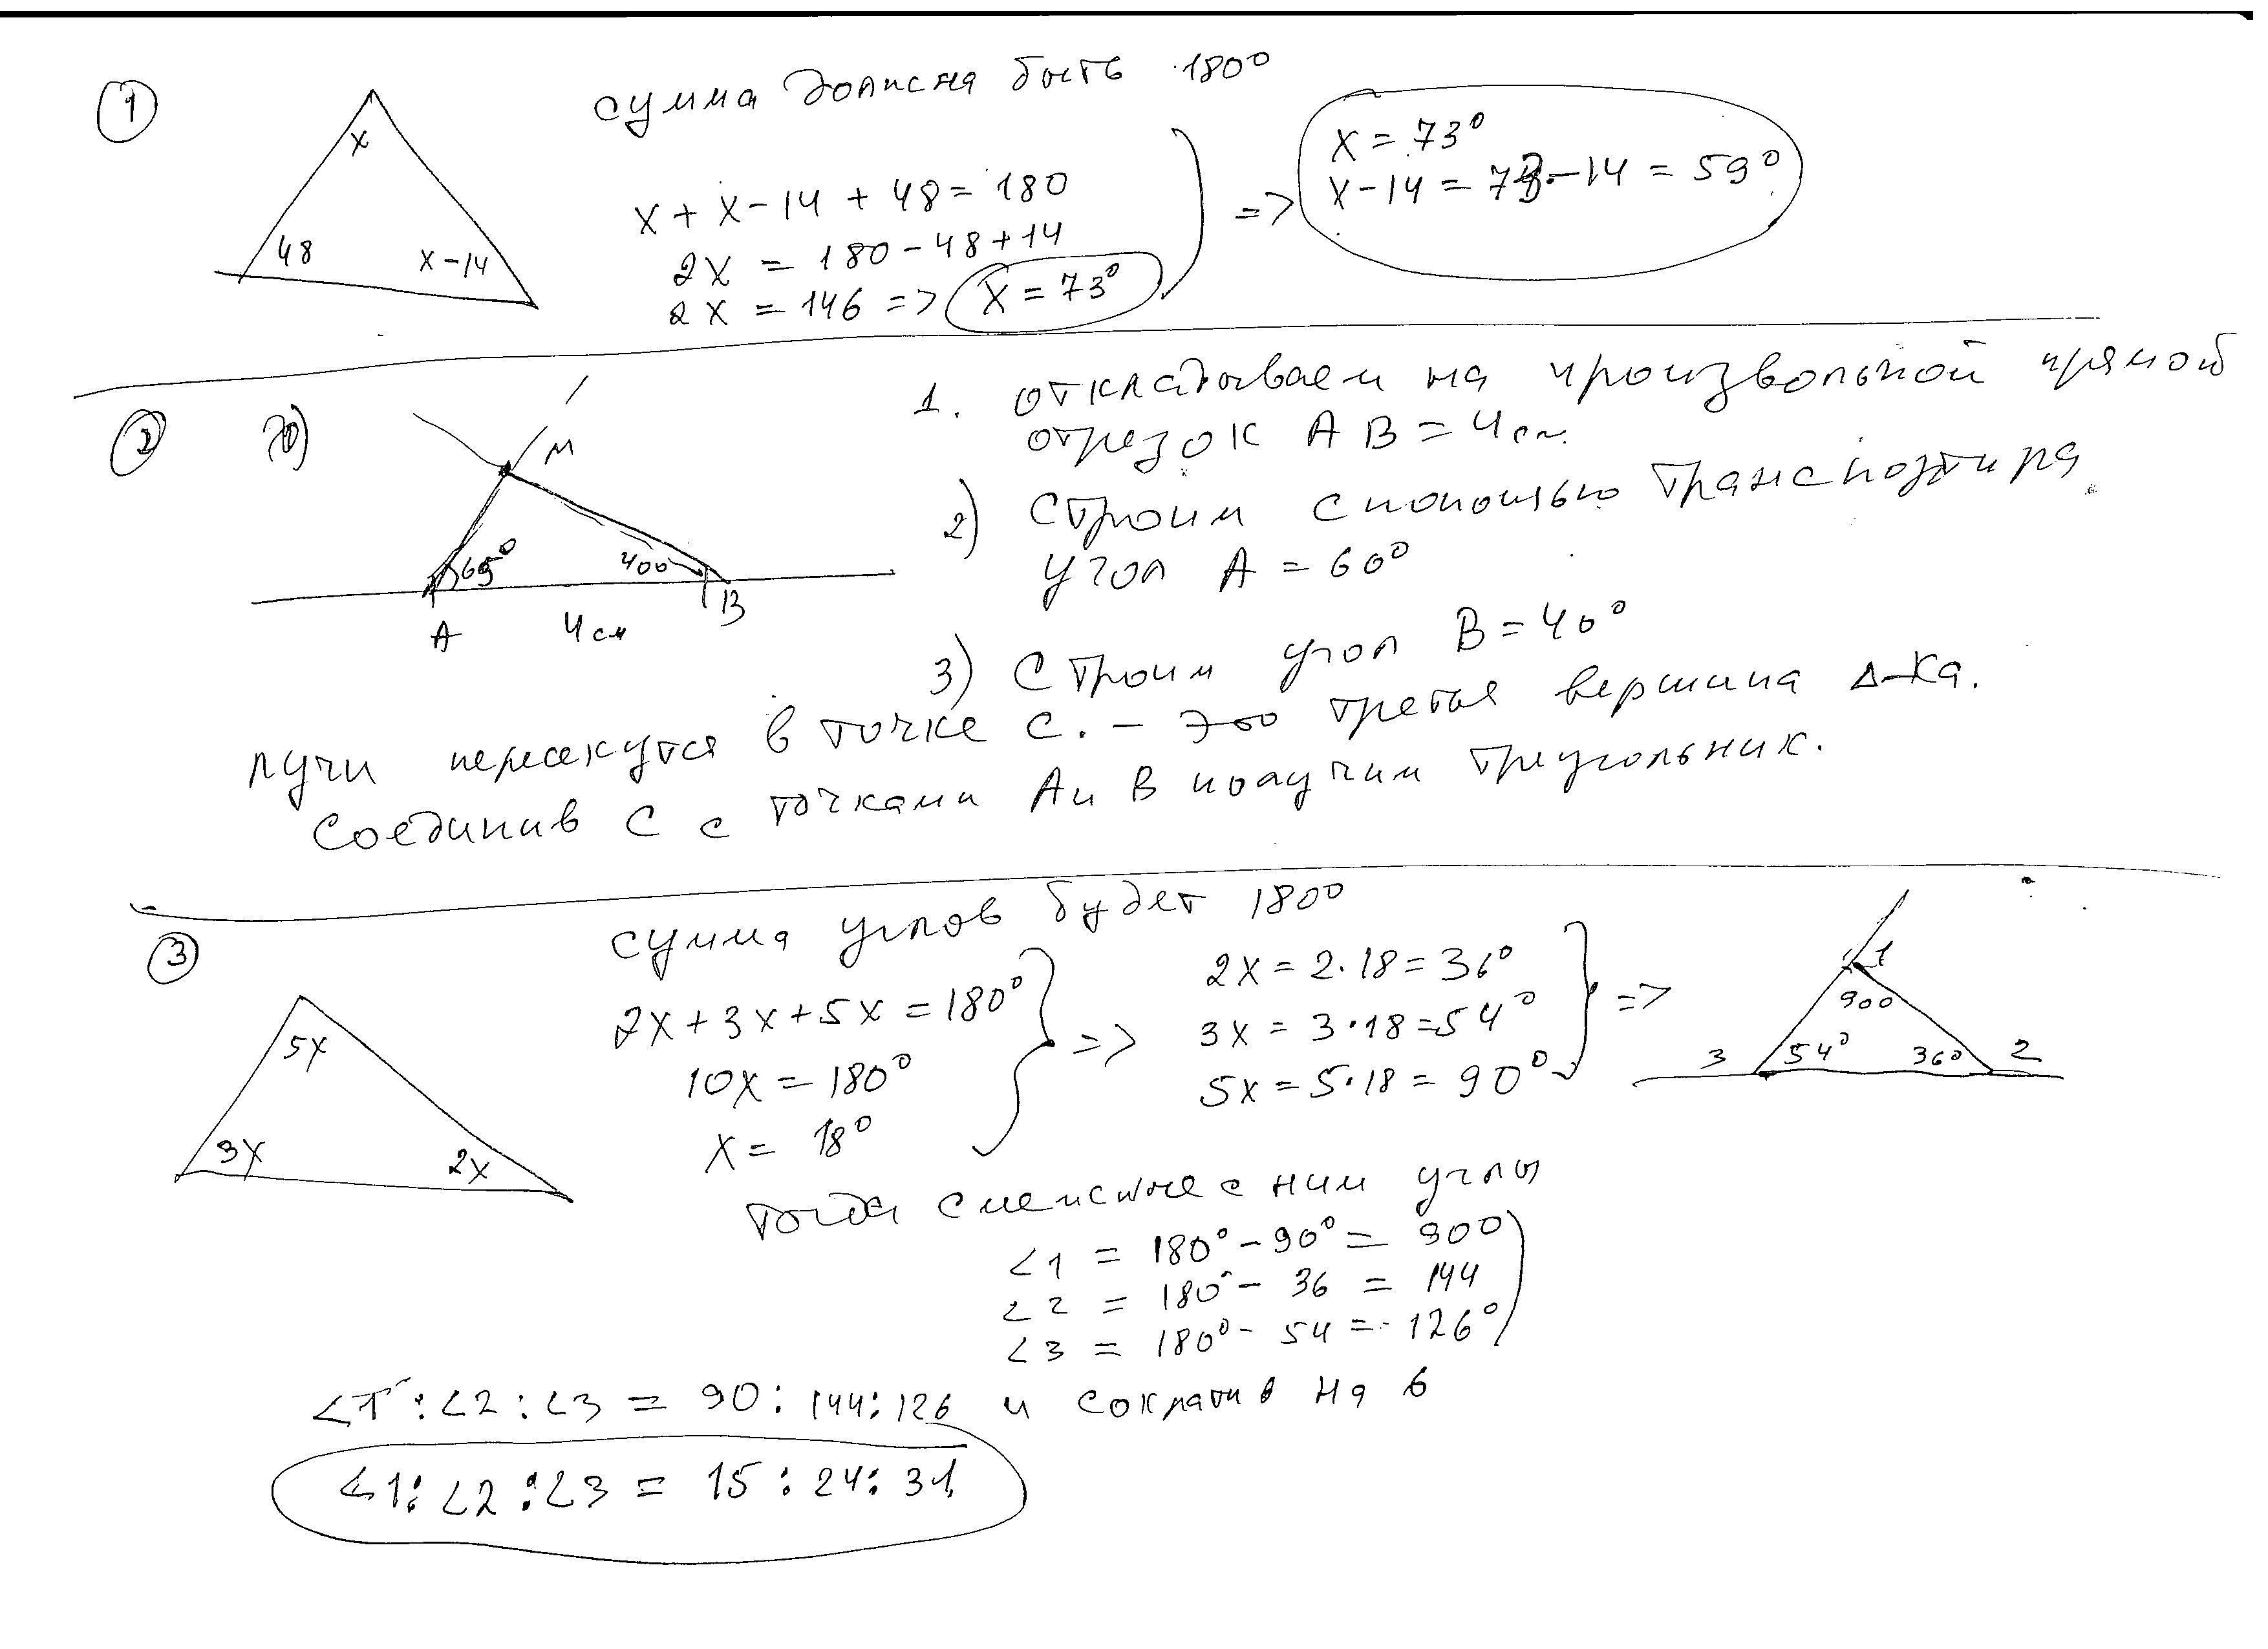 1
x
48
x-14
сумма должна быть 180°
x + x - 14 + 48 = 180
2x = 180 - 48 + 14
2x = 146 => x = 73°
=> x = 73°
x - 14 = 73 - 14 = 59°
2
M
40°
A
4 см
B
1. откладываем на произвольной прямой
отрезок AB = 4 см.
2) Строим с помощью транспортира
угол A = 60°
3) Строим угол B = 40°
лучи пересекутся в точке C. - это третья вершина Δ-ка.
Соединив C с точками A и B получим треугольник.
3
5x
3x
2x
сумма углов будет 180°
2x + 3x + 5x = 180°
10x = 180°
x = 18°
=>
2x = 2·18 = 36°
3x = 3·18 = 54°
5x = 5·18 = 90°
=>
1
90°
3 54° 36° 2
тогда смежные с ним углы
∠1 = 180° - 90° = 90°
∠2 = 180° - 36 = 144
∠3 = 180° - 54 = 126°
∠1 : ∠2 : ∠3 = 90 : 144 : 126 и сократив на 6
∠1 : ∠2 : ∠3 = 15 : 24 : 31